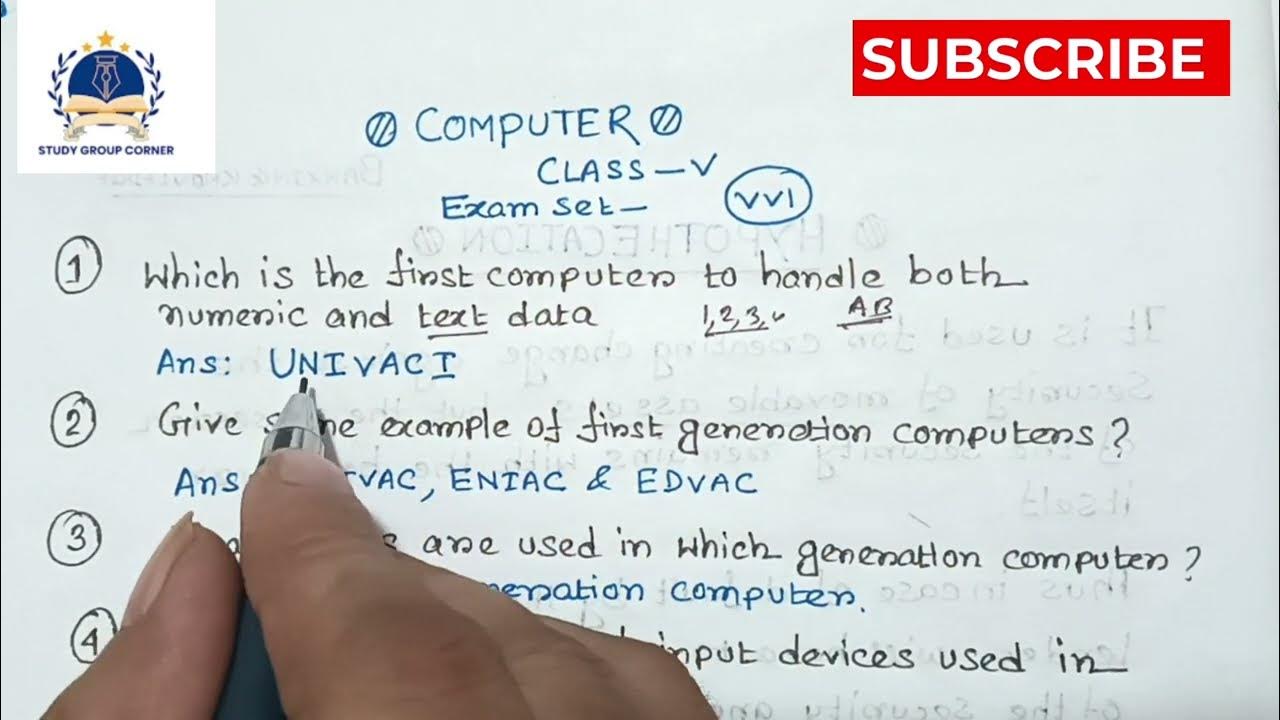 STUDY GROUP CORNER
SUBSCRIBE
COMPUTER
CLASS - V
Exam Set - VVI
1 Which is the first computer to handle both
numeric and text data 1,2,3, AB
Ans: UNIVAC I
2 Give example of first generation computers?
Ans VAC, ENIAC & EDVAC
3 are used in which generation computer?
computer.
4 input devices used in